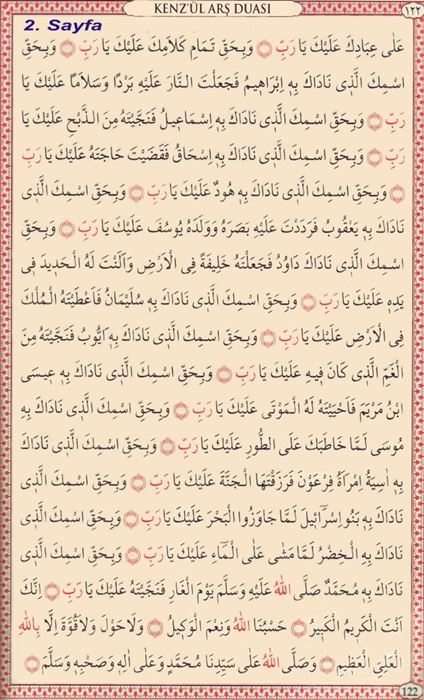 KENZ'ÜL ARŞ DUASI
١٢٢
2. Sayfa
عَلٰى عِبَادِكَ عَلَيْكَ يَا رَبِّ ۞ وَبِحَقِّ تَمَامِ كَلَامِكَ عَلَيْكَ يَا رَبِّ ۞ وَبِحَقِّ
اسْمِكَ الَّذٖى نَادَاكَ بِهٖ اِبْرَاهٖيمُ فَجَعَلْتَ النَّارَ عَلَيْهِ بَرْدًا وَسَلَامًا عَلَيْكَ يَا
رَبِّ ۞ وَبِحَقِّ اسْمِكَ الَّذٖى نَادَاكَ بِهٖ اِسْمَاعٖيلُ فَنَجَّيْتَهُ مِنَ الذَّبْحِ عَلَيْكَ يَا
رَبِّ ۞ وَبِحَقِّ اسْمِكَ الَّذٖى نَادَاكَ بِهٖ اِسْحَاقُ فَقَضَيْتَ حَاجَتَهُ عَلَيْكَ يَا رَبِّ
۞ وَبِحَقِّ اسْمِكَ الَّذٖى نَادَاكَ بِهٖ هُودٌ عَلَيْكَ يَا رَبِّ ۞ وَبِحَقِّ اسْمِكَ الَّذٖى
نَادَاكَ بِهٖ يَعْقُوبُ فَرَدَدْتَ عَلَيْهِ بَصَرَهُ وَوَلَدَهُ يُوسُفَ عَلَيْكَ يَا رَبِّ ۞ وَبِحَقِّ
اسْمِكَ الَّذٖى نَادَاكَ دَاوُدُ فَجَعَلْتَهُ خَلٖيفَةً فِى الْاَرْضِ وَاَلَنْتَ لَهُ الْحَدٖيدَ فٖى
يَدِهٖ عَلَيْكَ يَا رَبِّ ۞ وَبِحَقِّ اسْمِكَ الَّذٖى نَادَاكَ بِهٖ سُلَيْمَانُ فَاَعْطَيْتَهُ الْمُلْكَ
فِى الْاَرْضِ عَلَيْكَ يَا رَبِّ ۞ وَبِحَقِّ اسْمِكَ الَّذٖى نَادَاكَ بِهٖ اَيُّوبُ فَنَجَّيْتَهُ مِنَ
الْغَمِّ الَّذٖى كَانَ فٖيهِ عَلَيْكَ يَا رَبِّ ۞ وَبِحَقِّ اسْمِكَ الَّذٖى نَادَاكَ بِهٖ عٖيسَى
ابْنُ مَرْيَمَ فَاَحْيَيْتَهُ لَهُ الْمَوْتٰى عَلَيْكَ يَا رَبِّ ۞ وَبِحَقِّ اسْمِكَ الَّذٖى نَادَاكَ بِهٖ
مُوسٰى لَمَّا خَاطَبَكَ عَلَى الطُّورِ عَلَيْكَ يَا رَبِّ ۞ وَبِحَقِّ اسْمِكَ الَّذٖى نَادَاكَ
بِهٖ اٰسِيَةُ امْرَاَةُ فِرْعَوْنَ فَرَزَقْتَهَا الْجَنَّةَ عَلَيْكَ يَا رَبِّ ۞ وَبِحَقِّ اسْمِكَ الَّذٖى
نَادَاكَ بِهٖ بَنُو اِسْرَائٖيلَ لَمَّا جَاوَزُوا الْبَحْرَ عَلَيْكَ يَا رَبِّ ۞ وَبِحَقِّ اسْمِكَ الَّذٖى
نَادَاكَ بِهِ الْخِضْرُ لَمَّا مَشٰى عَلَى الْمَاءِ عَلَيْكَ يَا رَبِّ ۞ وَبِحَقِّ اسْمِكَ الَّذٖى
نَادَاكَ بِهٖ مُحَمَّدٌ صَلَّى اللهُ عَلَيْهِ وَسَلَّمَ يَوْمَ الْغَارِ فَنَجَّيْتَهُ عَلَيْكَ يَا رَبِّ ۞ اِنَّكَ
اَنْتَ الْكَرٖيمُ الْكَبٖيرُ ۞ حَسْبُنَا اللهُ وَنِعْمَ الْوَكٖيلُ ۞ وَلَا حَوْلَ وَلَا قُوَّةَ اِلَّا بِاللهِ
الْعَلِىِّ الْعَظٖيمِ ۞ وَصَلَّى اللهُ عَلٰى سَيِّدِنَا مُحَمَّدٍ وَعَلٰى اٰلِهٖ وَصَحْبِهٖ وَسَلَّمَ ۞
122